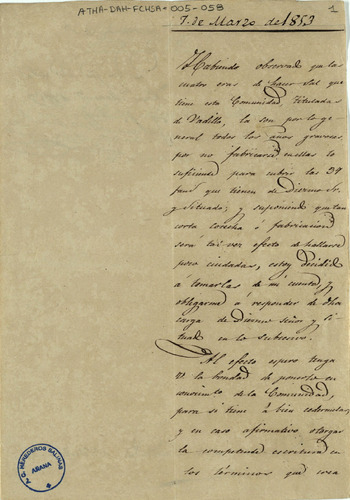 ATHA-DAH-FCHSA-005-058
1
7. de Marzo de 1853
Habiendo observado que las
cuatro eras de hacer sal que
tiene esta Comunidad, tituladas
de Vadillo, la son por lo ge
neral todos los años gravosas,
por no fabricarse en ellas lo
suficiente para cubrir las 39
fans que tienen de Diezmo Sr
y Situado; y suponiendo que tan
corta cosecha ó fabricacion
será tal vez efecto de hallarse
poco cuidadas, estoy decidido
á tomarlas de mi cuenta, y
obligarme á responder de dha
carga de Diezmo Señor y Si
tuado en lo subcesivo.
Al efecto espero tenga
V. la bondad de ponerlo en
conocimto de la Comunidad,
para si tiene á bien cedermelas;
y en caso afirmativo otorgar
la competente escritura en
los términos que crea
C. G. HEREDEROS SALINAS
AÑANA